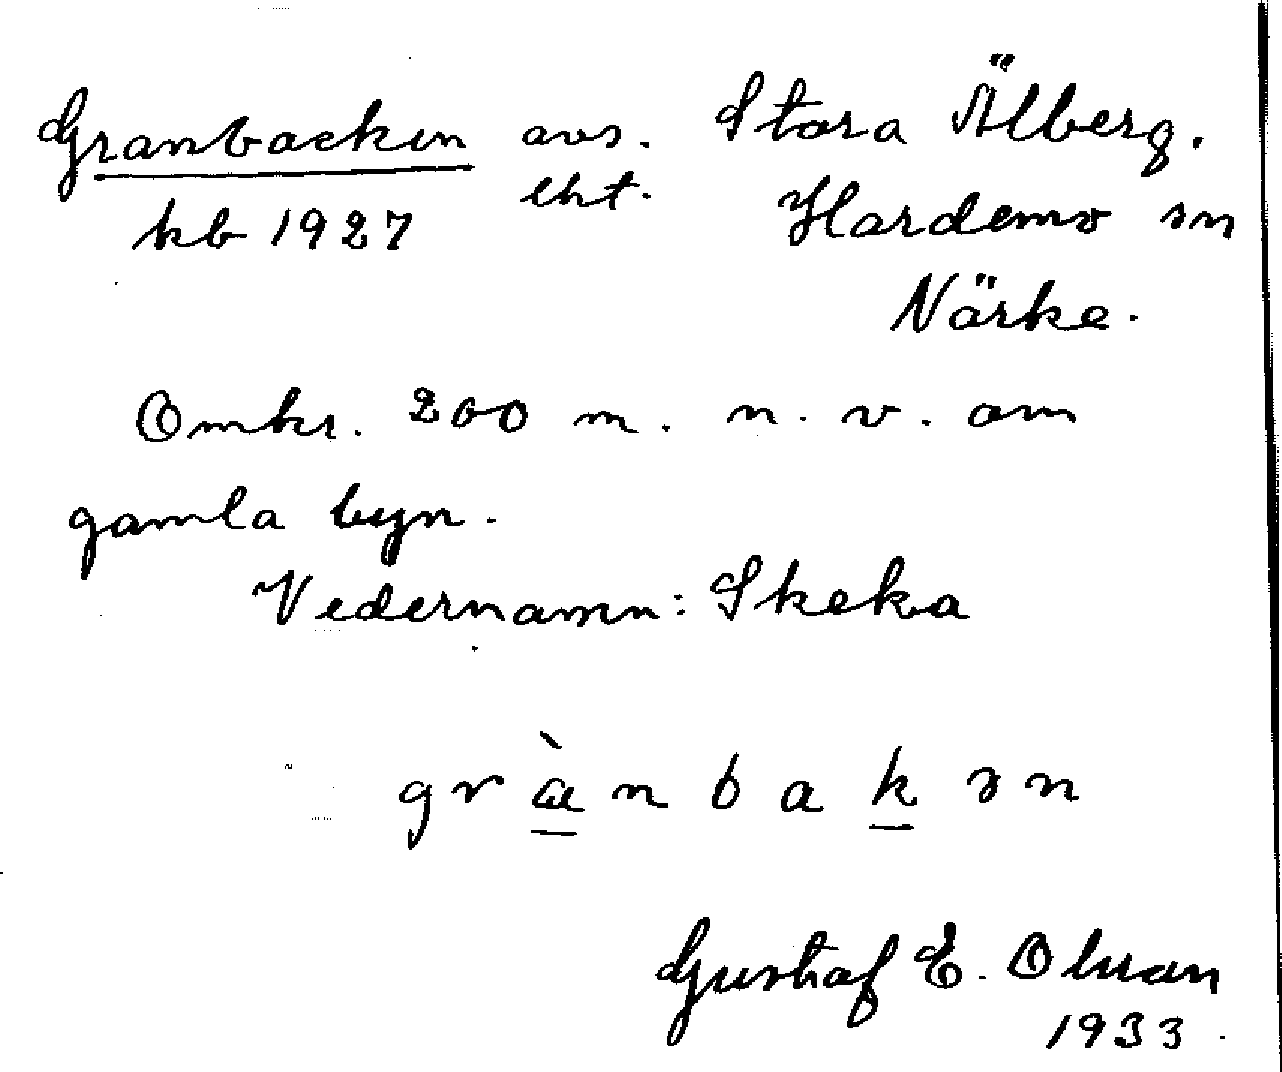 Granbacken avs. Stora Älberg.
kb 1927 lht. Hardemo sn
Närke.
Omkr. 200 m. n. v. om
gamla byn.
Vedernamn: Skeka
grànbakən
Gustaf E. Olsson
1933.